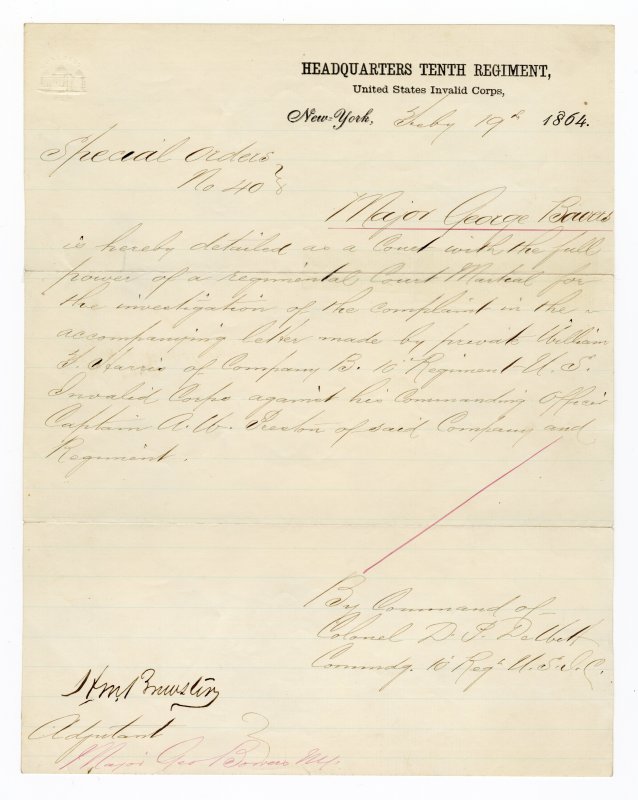 HEADQUARTERS TENTH REGIMENT,
United States Invalid Corps,
New-York, Feby 19th 1864.
Special Orders
No 40
Major George Bowers
is hereby detailed as a Court with the full
power of a regimental Court Martial for
the investigation of the complaint in the
accompanying letter made by private William
F. Harris of Company B. 10" Regiment U. S.
Invalid Corps against his Commanding Officer
Captain A. W. Preston of said Company and
Regiment.
By Command of
Colonel D. P. DeWitt
Commdg. 10" Regt U. S. I. C.
Brewster
Adjutant
Major Geo Bowers